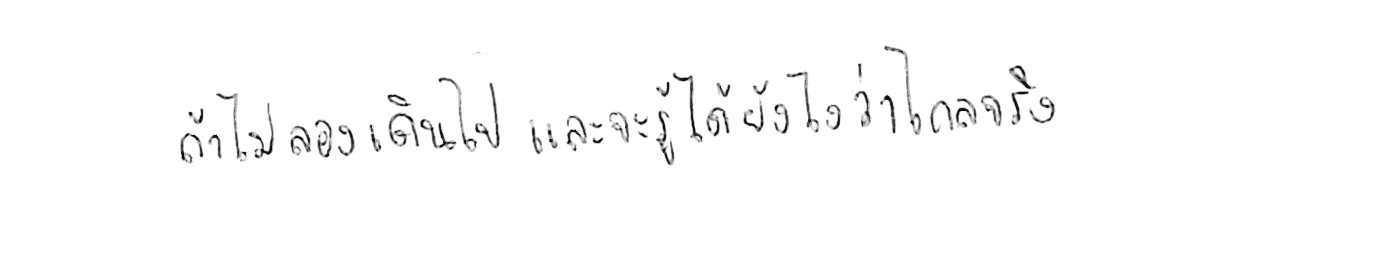 ถ้าไม่ลองเดินไป และจะรู้ได้ยังไงว่าไกลจริง